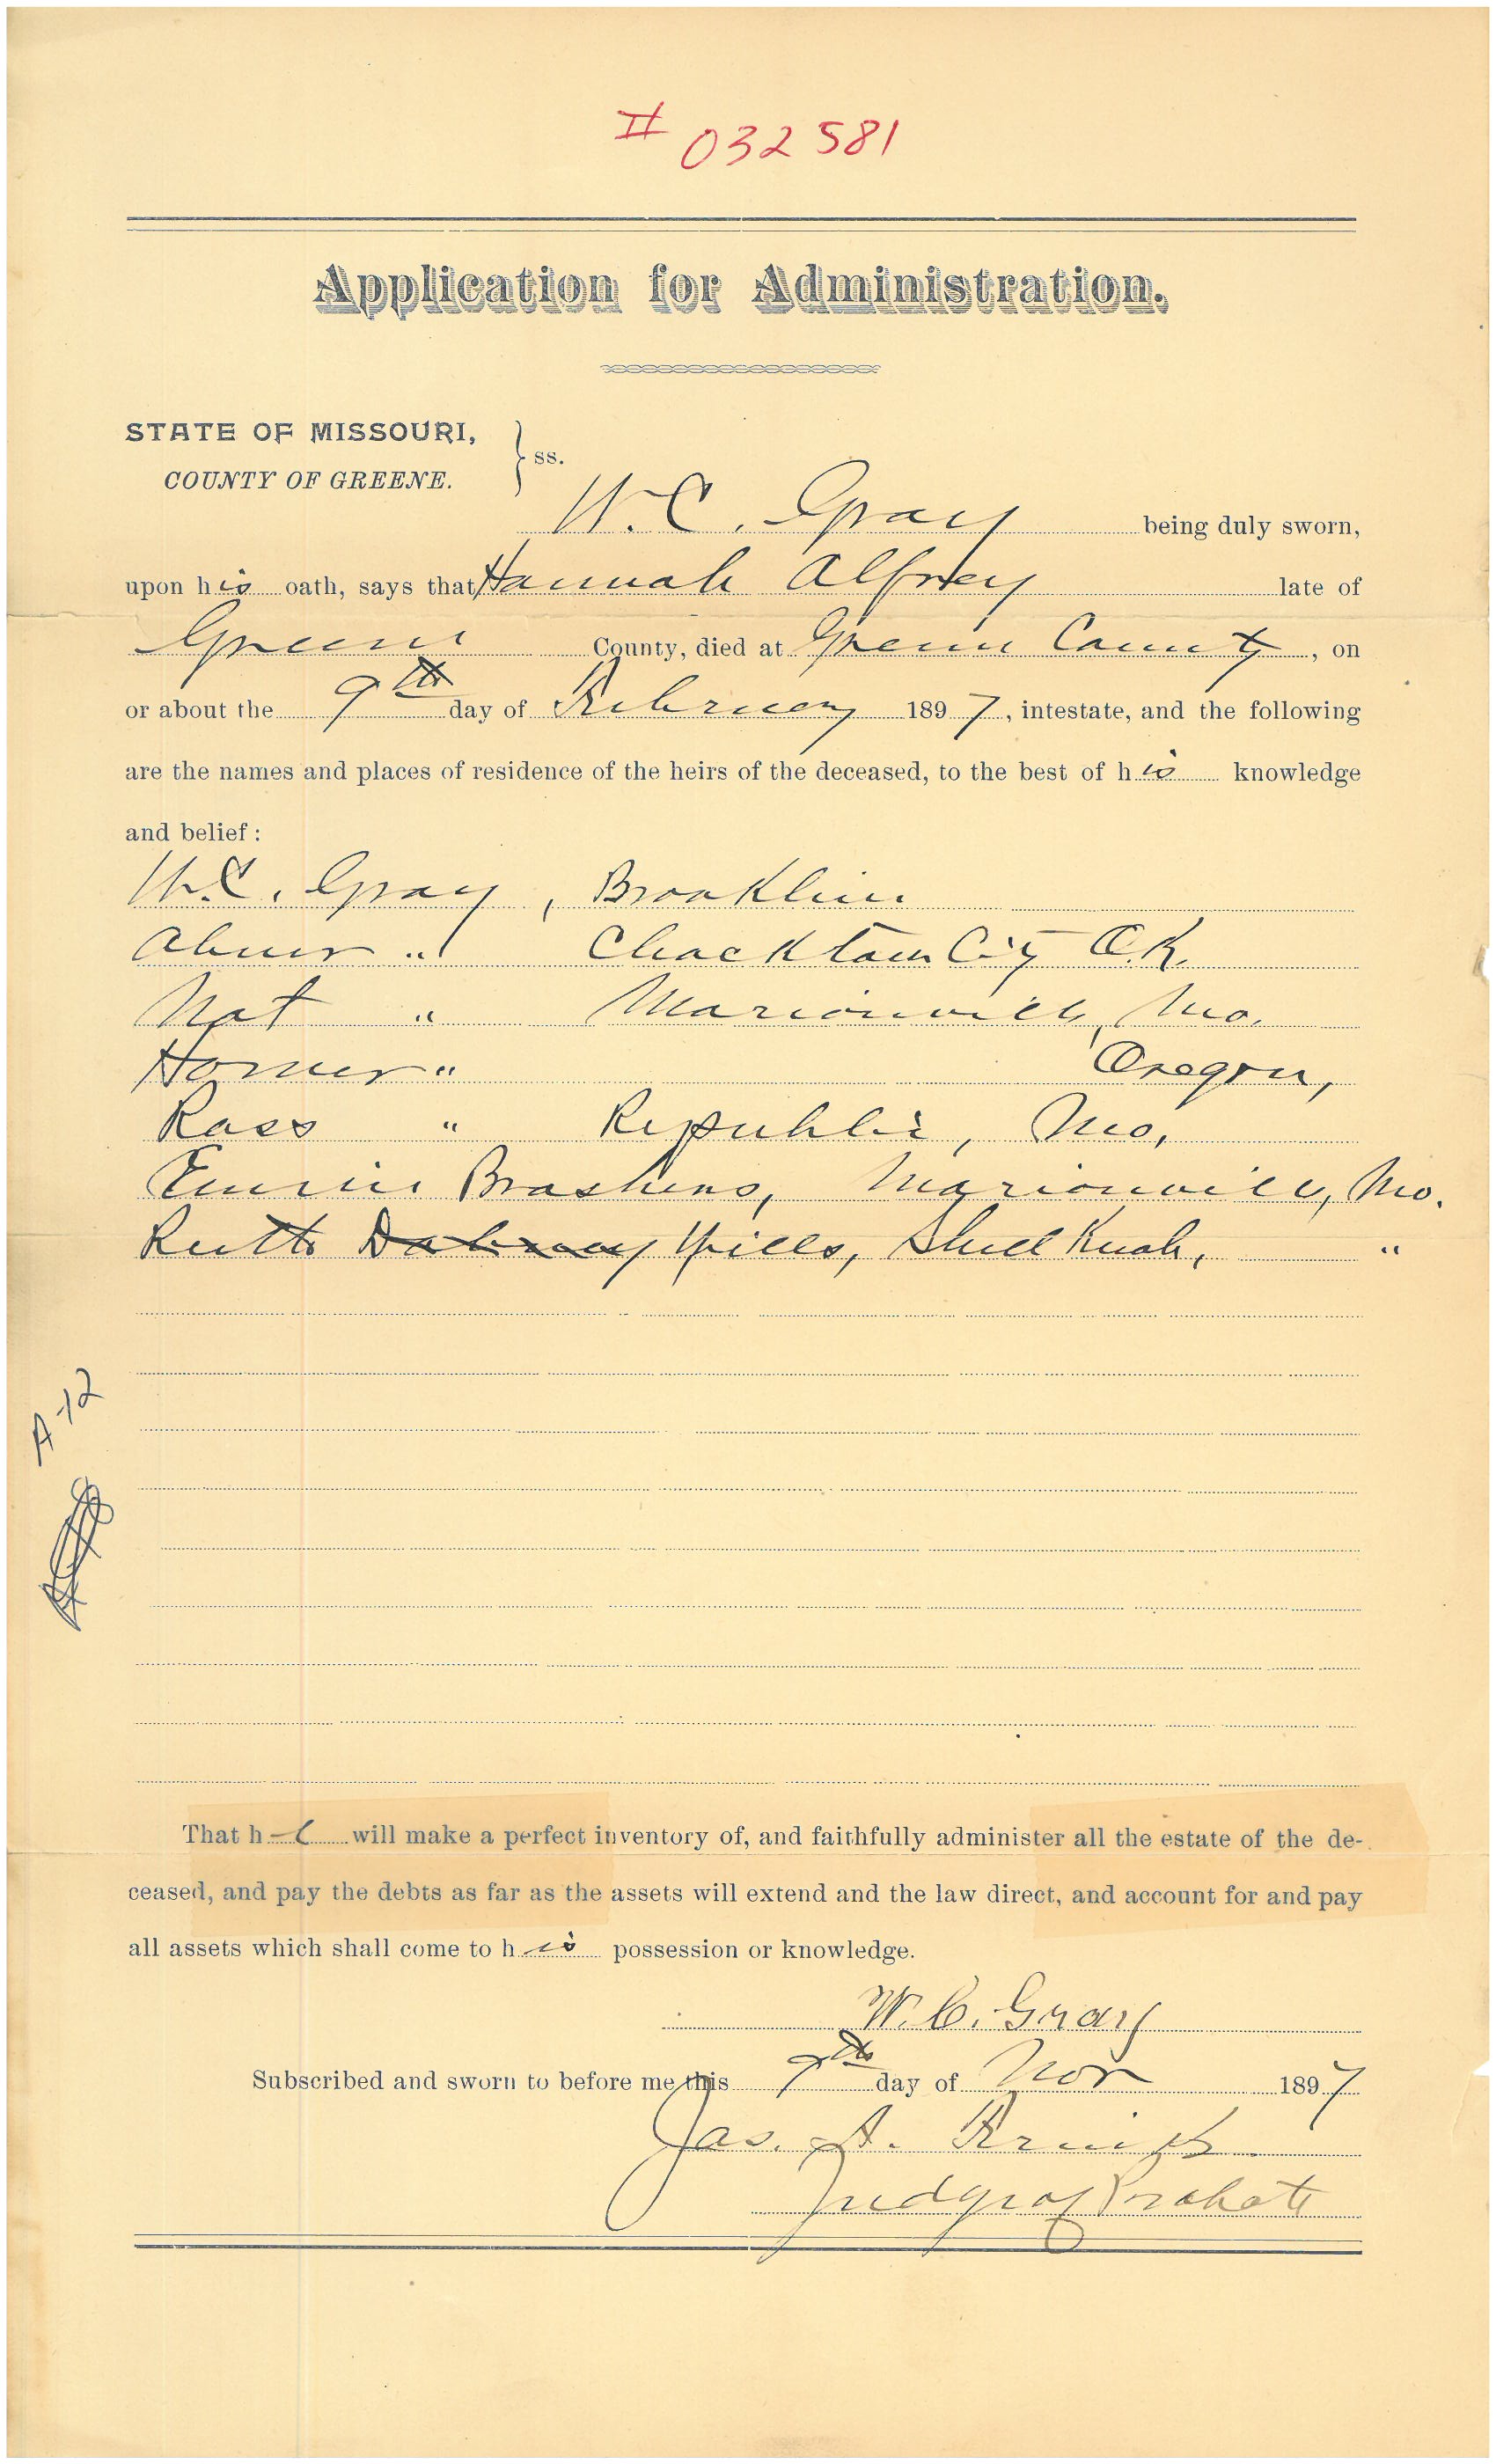 # 032581
Application for Administration.
STATE OF MISSOURI,
COUNTY OF GREENE. } ss.
W. C. Gray being duly sworn,
upon his oath, says that Hannah Alfrey late of
Greene County, died at Greene County, on
or about the 9th day of February 1897, intestate, and the following
are the names and places of residence of the heirs of the deceased, to the best of his knowledge
and belief:
W. C. Gray, Brookline
Abner " Chocktaw City O.K.
Nat " Marionville, Mo.
Homer " Oregon,
Ross " Republic, Mo,
Brashears, Marionville, Mo.
Ruth Dabney Mills, Shell Knob, "
A-12
That he will make a perfect inventory of, and faithfully administer all the estate of the de-
ceased, and pay the debts as far as the assets will extend and the law direct, and account for and pay
all assets which shall come to his possession or knowledge.
W. C. Gray
Subscribed and sworn to before me this 9th day of Nov 1897
Jas. A.
Judge of Probate